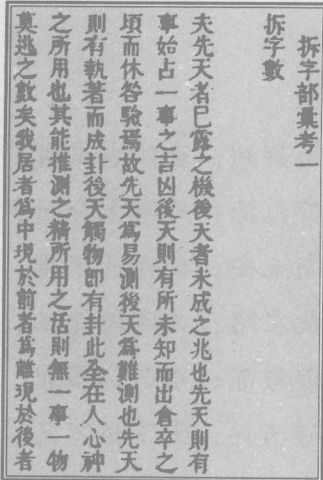 拆字部彙考一
拆字數
夫先天者已露之機後天者未成之兆也先天則有
事始占一事之吉凶後天則有所未知而出倉卒之
頃而休咎驗焉故先天爲易測後天爲難測也先天
則有執著而成卦後天觸物卽有卦此全在人心神
之所用也其能推測之精所用之活則無一事一物
莫逃之數矣我居者爲中現於前者爲離現於後者